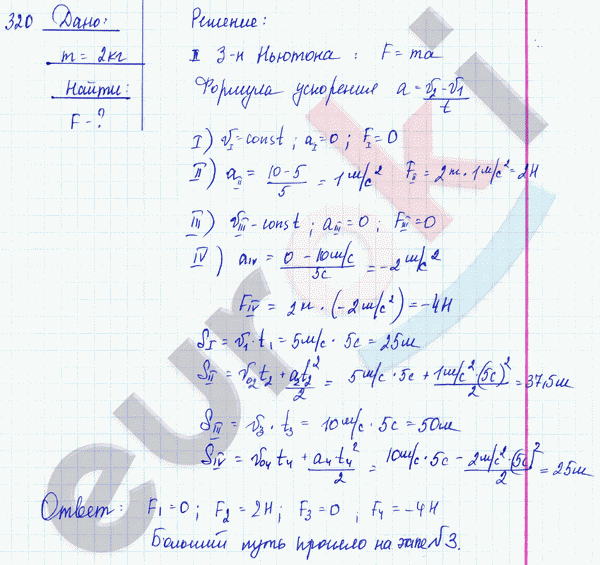 320 Дано:
m = 2кг
Найти:
F - ?
Решение:
II З-н Ньютона : F = ma
Формула ускорения a = (v₂ - v₁)/t
I) v_I - const ; a_I = 0 ; F_I = 0
II) a_II = (10 - 5)/5 = 1 м/с² F_II = 2кг · 1 м/с² = 2Н
III) v_III - const ; a_III = 0 ; F_III = 0
IV) a_IV = (0 - 10м/с)/5с = -2 м/с²
F_IV = 2кг · (-2 м/с²) = -4Н
S_I = v₁ · t₁ = 5м/с · 5с = 25м
S_II = v₀₂ t₂ + a₂t₂²/2 = 5м/с · 5с + 1м/с² · (5с)²/2 = 37,5м
S_III = v₃ · t₃ = 10м/с · 5с = 50м
S_IV = v₀₄ t₄ + a₄t₄²/2 = 10м/с · 5с - 2м/с² · (5с)²/2 = 25м
Ответ: F₁ = 0 ; F₂ = 2Н ; F₃ = 0 , F₄ = -4Н
Больший путь прошло на этапе №3.
euroki